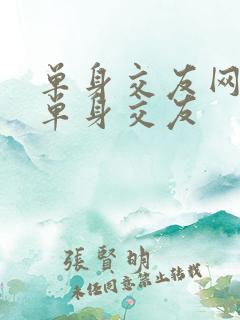 单身交友网
单身交友
張賢明
未经同意禁止转载